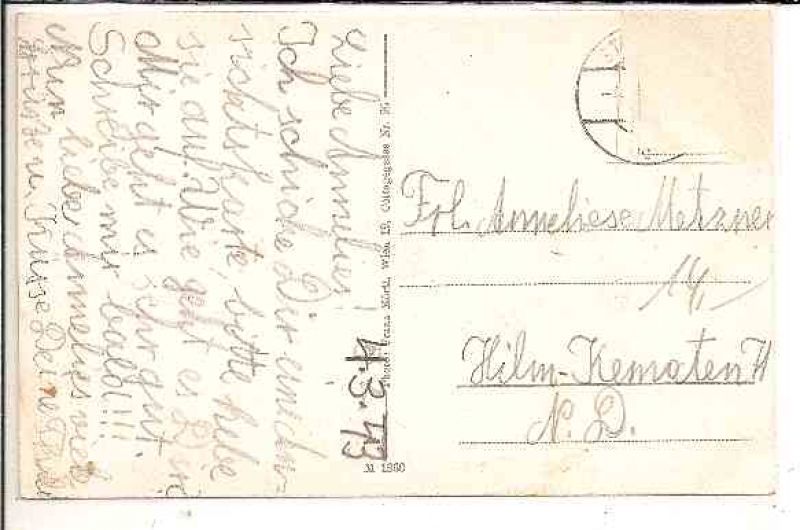 Liebe Annelies!
Ich schicke Dir eine An-
sichtskarte, bitte hebe
sie auf. Wie geht es Dir
Mir geht es sehr gut.
Schreibe mir bald!!!
Nun liebe Annelies viele
Grüße u. Küsse Deine
4.3.43
Photo: Franz Mörtl, Wien 19, Cottagegasse Nr. 36.
M 1360
Frl. Anneliese Metzner
14,
Hilm-Kematen
N. D.